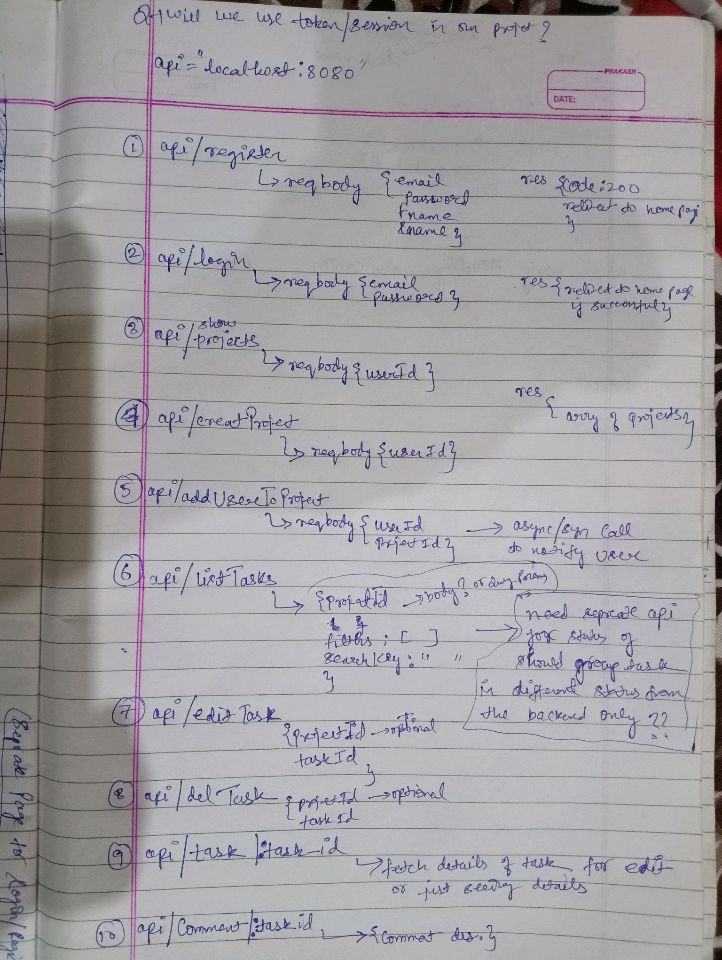 Q-1 will we use token/session in our projet ?
api = "localhost : 8080"
PRAKASH
DATE:
① api/register
↳ reqbody {email
password
fname
lname }
res {code:200
redirect to home page
}
② api/login
↳ reqbody {email
password }
res { redirect to home page
if successful }
③ api/show projects
↳ reqbody { userId }
res
{ array of projects }
④ api/creatProject
↳ reqbody {userId}
⑤ api/addUserToProject
↳ reqbody { userId → async/syn Call
projetId } to notify User
⑥ api/ListTasks
↳ {ProjetId → body? or
filters : [ ]
searchKey : " "
}
→ need seprate api
for status of
should group task
in different status from
the backend only ??
⑦ api/edit Task
{projetId → optional
taskId
}
⑧ api/del Task { projetId → optional
taskId
}
⑨ api/task/:task-id
↳ fetch details of task for edit
or just seeing details
⑩ api/Comment/:taskid
↳ {Commat des.}
Page for Login/